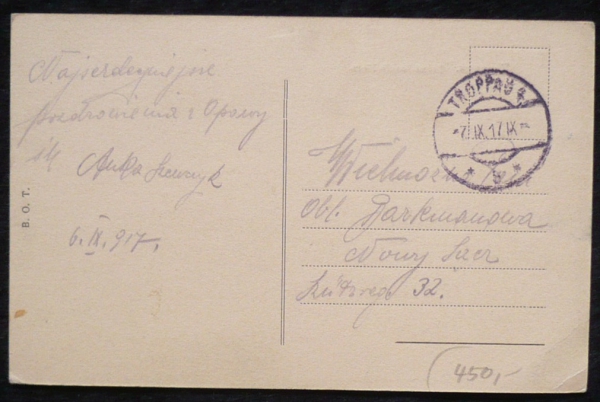 Najserdeczniejsze
pozdrowienia z Opawy
Anka
6.IX.917.
B. O. T.
TROPPAU
7.IX.17.IX
Wielmożna
Obl. Barkmanowa
Nowy Sącz
32.
450,-